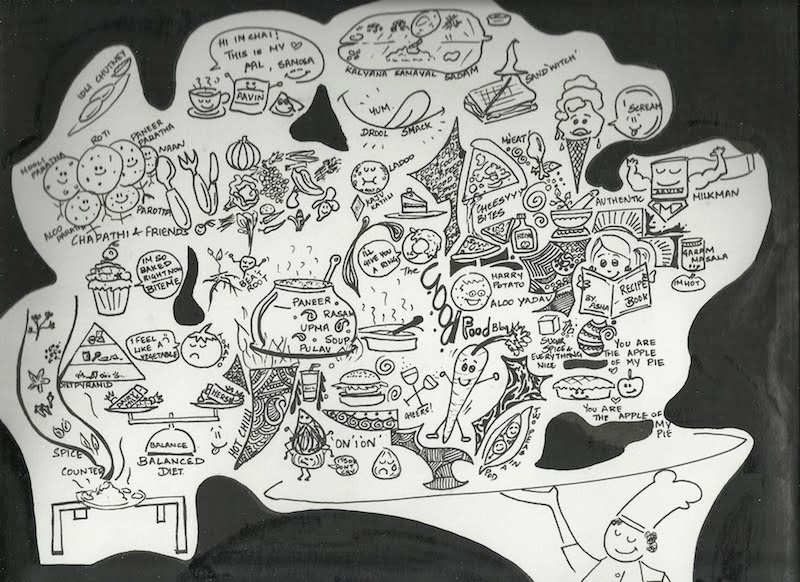 HI IM CHAI!
THIS IS MY
PAL, SAMOSA
AAVIN
KALYANA SAMAYAL SADAM
SAND'WITCH'
'SCREAM
IDLI CHUTNEY
YUM
DROOL SMACK
MOOLI
PARATHA
ROTI
PANEER
PARATHA
NAAN
PAROTTA
ALOO
PARATHA
CHAPATHI & FRIENDS
LADOO
KAJU
KATHLI
M'EAT
CHEESYYY
BITES
AUTHENTIC
MILKMAN
M
GARAM
MASALA
I'M HOT
I'M SO
BAKED
RIGHT NOW
BITE ME
BEAT
ROOT
I'LL
GIVE YOU
A RING!
The
COOL
Food Blog
HARRY
POTATO
ALOO YADAV
RECIPE
BOOK
BY
ASHA
PANEER
RASAM
UPMA
SOUP
PULAV
I FEEL
LIKE A
VEGETABLE
DIET PYRAMID
SUGAR
SPICE &
EVERYTHING
NICE
YOU ARE
THE APPLE
OF MY PIE
YOU ARE
THE APPLE OF
MY
PIE
BALANCE
BALANCED
DIET
HOT CHILLI
CHEERS!
SPICE
COUNTER
'ON'ION